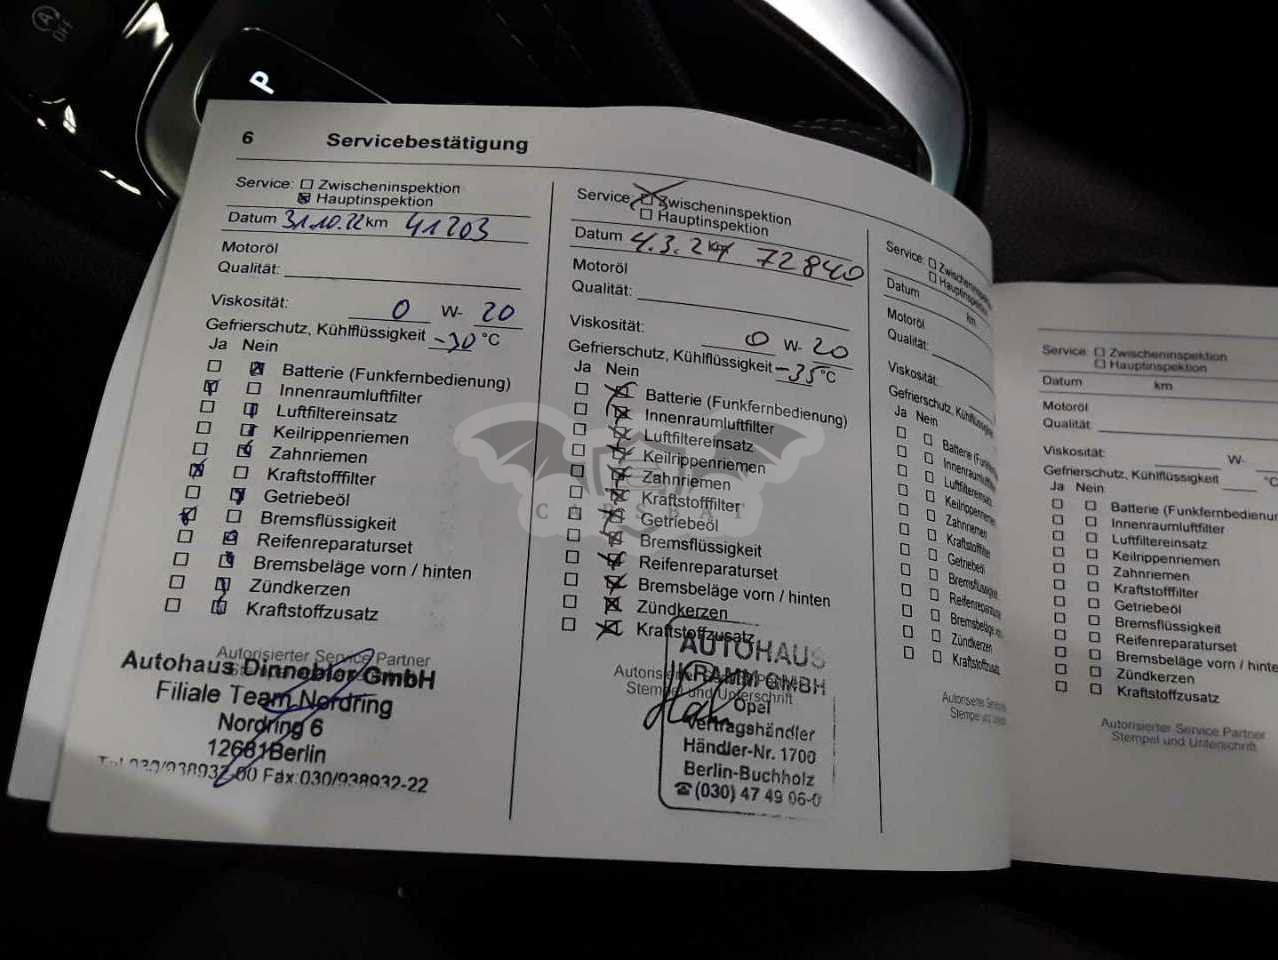 A
OFF
P
6 Servicebestätigung
Service: Zwischeninspektion
Hauptinspektion
Datum 31.10.22 km 41203
Motoröl
Qualität:
Viskosität: 0 W- 20
Gefrierschutz, Kühlflüssigkeit -30 °C
Ja Nein
Batterie (Funkfernbedienung)
Innenraumluftfilter
Luftfiltereinsatz
Keilrippenriemen
Zahnriemen
Kraftstofffilter
Getriebeöl
Bremsflüssigkeit
Reifenreparaturset
Bremsbeläge vorn / hinten
Zündkerzen
Kraftstoffzusatz
Autorisierter Service Partner
Autohaus Dinnebier GmbH
Filiale Team Nordring
Nordring 6
12681 Berlin
Tel.030/938932-00 Fax:030/938932-22
Service: Zwischeninspektion
Hauptinspektion
Datum 4.3.24 km 72840
Motoröl
Qualität:
Viskosität: 0 W- 20
Gefrierschutz, Kühlflüssigkeit -35 °C
Ja Nein
Batterie (Funkfernbedienung)
Innenraumluftfilter
Luftfiltereinsatz
Keilrippenriemen
Zahnriemen
Kraftstofffilter
Getriebeöl
Bremsflüssigkeit
Reifenreparaturset
Bremsbeläge vorn / hinten
Zündkerzen
Kraftstoffzusatz
Stempel und Unterschrift
AUTOHAUS
KRAMM GMBH
Opel
Vertragshändler
Händler-Nr. 1700
Berlin-Buchholz
☎(030) 47 49 06-0
CARSBAT
Service: Zwischeninspektion
Hauptinspektion
Datum km
Motoröl
Qualität:
Viskosität:
Gefrierschutz, Kühlflüssigkeit
Ja Nein
Batterie (Funkf
Innenraumluftfilter
Luftfiltereinsatz
Keilrippenriemen
Zahnriemen
Kraftstofffilter
Getriebeöl
Bremsflüssigkeit
Reifenreparaturset
Bremsbeläge vorn
Zündkerzen
Kraftstoffzusatz
Autorisierter Service
Stempel und
Service: Zwischeninspektion
Hauptinspektion
Datum km
Motoröl
Qualität:
Viskosität: W-
Gefrierschutz, Kühlflüssigkeit °C
Ja Nein
Batterie (Funkfernbedienun
Innenraumluftfilter
Luftfiltereinsatz
Keilrippenriemen
Zahnriemen
Kraftstofffilter
Getriebeöl
Bremsflüssigkeit
Reifenreparaturset
Bremsbeläge vorn / hinte
Zündkerzen
Kraftstoffzusatz
Autorisierter Service Partner
Stempel und Unterschrift